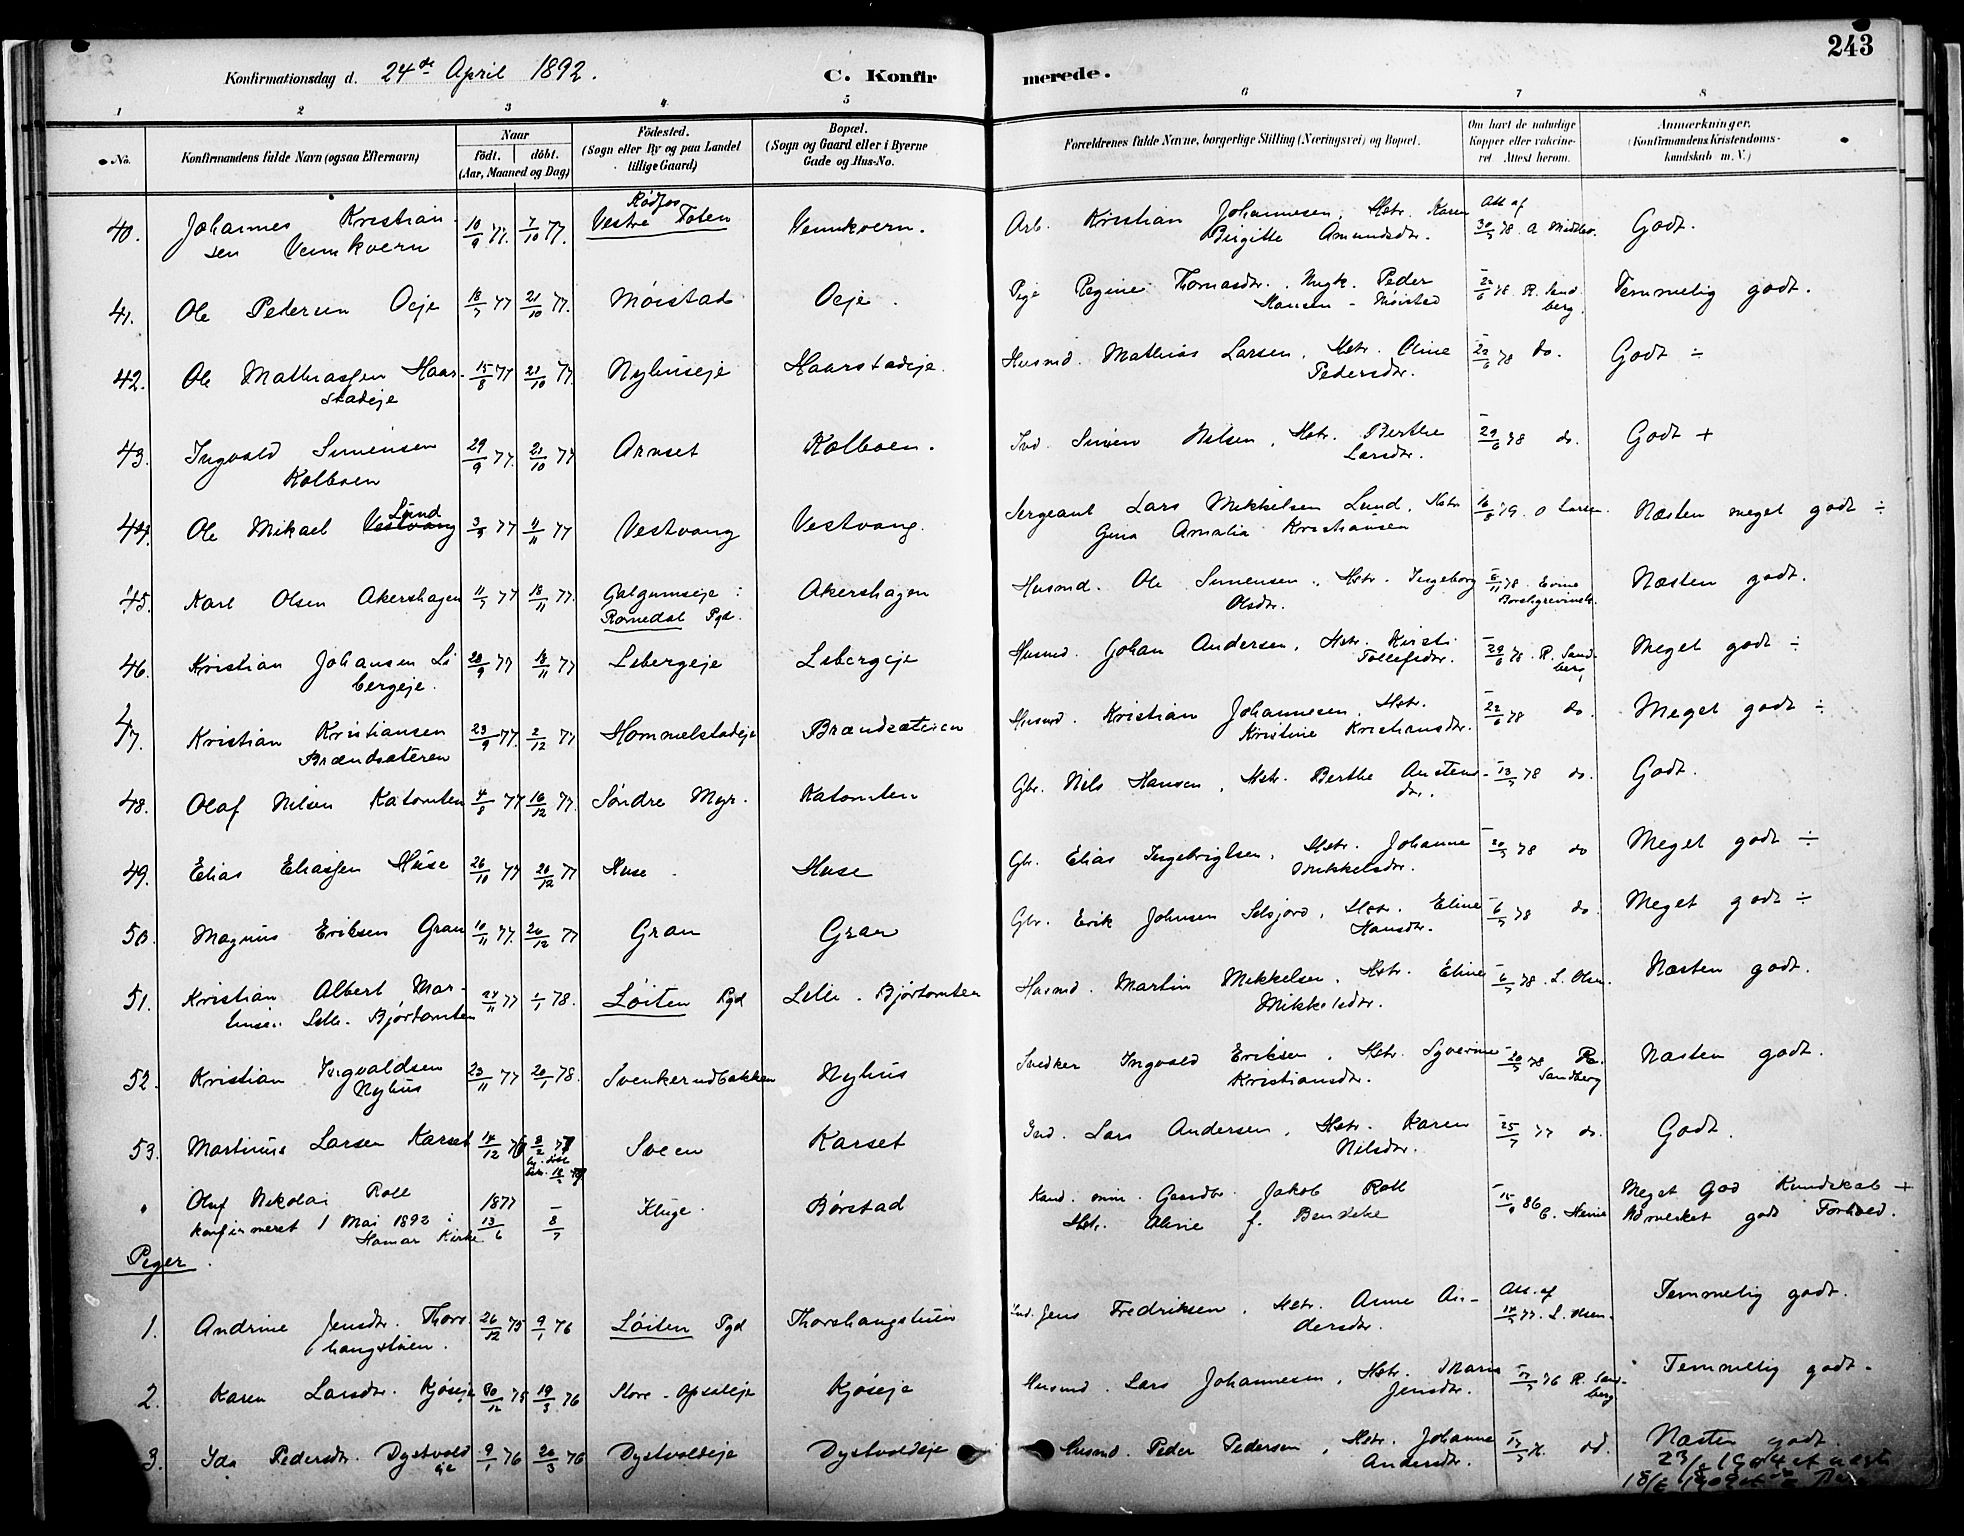 243
Konfirmationsdag d. 24de April 1892. C. Konfirmerede.
1 2 3 4 5 6 7 8
No. Konfirmandens fulde Navn (ogsaa Efternavn) Naar födt. döbt. (Aar, Maaned og Dag) Födested. (Sogn eller By og paa Landet tillige Gaard) Bopæl. (Sogn og Gaard eller i Byerne Gade og Hus-No. Forældrenes fulde Navne, borgerlige Stilling (Næringsvei) og Bopæl. Om havt de naturlige Kopper eller vakcineret. Attest herom. Anmærkninger. (Konfirmandens Kristendomskundskab m. V.)
40. Johannes Kristiansen Vennkvern 10/9 77. 7/10 77. Vestre Toten Vennkvern. Arb. Kristian Johannesen, Hstr. Karen Birgitte Amundsdtr. Att af 30/5 78. Godt.
41. Ole Pedersen Oeje 18/7 77 21/10 77. Möistad Oeje. Pige Regine Thomasdtr. Ungk. Peder Hansen - Möistad 22/6 78 R. Sandberg Temmelig godt.
42. Ole Mathiassen Haarstadeje 15/8 77 21/10 77. Nyhuseje Haarstadeje. Husmd. Mathias Larsen, Hstr. Oline Pedersdtr. 22/6 78 do. Godt ÷
43. Ingvald Simensen Kolboen 29/9 77. 21/10 77 Arnset Kolboen. Ind. Simen Nilsen, Hstr. Berthe Larsdtr. 29/6 78 do. Godt +
44. Ole Mikael Vestvang Lund 3/9 77 4/11 77 Vestvang Vestvang. Sergeant Lars Mikkelsen Lund, Hstr. Gina Amalia Kristiansen O Larsen Næsten meget godt ÷
45. Karl Olsen Akershagen 11/7 77 18/11 77. Galgumseje i Romedal Pgd. Akershagen Husmd. Ole Simensen, Hstr. Ingeborg Olsdtr. Næsten godt.
46. Kristian Johansen Libergeje. 20/9 77 18/11 77 Libergeje Libergeje Husmd. Johan Andersen, Hstr. Kirsti Tollefsdtr. 29/6 78. R. Sandberg Meget godt ÷
47. Kristian Kristiansen Brændsæteren 23/9 77. 2/12 77 Hommelstadeje Brændsæteren Husmd. Kristian Johannesen, Hstr. Kristine Kristiansdtr. 22/6 78 do. Meget godt ÷
48. Olaf Nilsen Katomten 4/8 77 16/12 77. Söndre Myr. Katomten Gbr. Nils Hansen, Hstr. Berthe Austensdtr. 13/7 78 do. Godt.
49. Elias Eliassen Huse 26/10 77 26/12 77 Huse. Huse Gbr. Elias Ingebrigtsen, Hstr. Johanne Mikkelsdtr. 20/7 78 do Meget godt ÷
50. Magnus Eriksen Gran 10/11 77. 26/12 77 Gran Gran Gbr. Erik Johnsen, Hstr. Eline Hansdtr. 6/7 78 do. Meget godt ÷
51. Kristian Albert Martinsen Lille-Bjørtomten 24/11 77 1/1 78. Löiten Pgd Lille-Bjørtomten Husmd. Martin Mikkelsen, Hstr. Eline Mikkelsdtr. 6/7 78. L. Olsen. Næsten godt.
52. Kristian Ingvaldsen Nyhus 23/11 77 20/1 78. Svenkerudbakken Nyhus Snedker Ingvald Eriksen, Hstr. Syverine Kristiansdtr. 20/7 78 R. Sandberg Næsten godt.
53. Martinus Larsen Karset 14/12 76 Sveen Karset Ind. Lars Andersen, Hstr. Karen Nilsdtr. 25/7 77 do. Godt.
Oluf Nikolai Roll konfirmeret 1 Mai 1892 i Hamar Kirke 1877 13/6 - 8/7 Kluge. Børstad Kand. min. Gaardbr. Jakob Roll Hstr. Aline f. Meget God Kundskab + Udmerket godt Forhold.
Piger.
1. Andrine Jensdtr. Thorshaugstuen. 26/12 75 9/1 76 Löiten Pgd Thorshaugstuen Ind. Jens Fredriksen, Hstr. Anne Andersdtr. Att. af 14/7 77. L. Olsen. Temmelig godt.
2. Karen Larsdtr. Kjöseje 30/12 75 19/3 76 Store-Opsaleje Kjöseje Husmd. Lars Johannesen, Hstr. Maria Jensdtr. 17/7 76 R. Sandberg Temmelig godt.
3. Ida Pedersdtr. Dystvoldeje 9/1 76 26/3 76 Dystvoldeje Dystvoldeje Husmd. Peder Pedersen, Hstr. Johanne Andersdtr. Næsten godt.